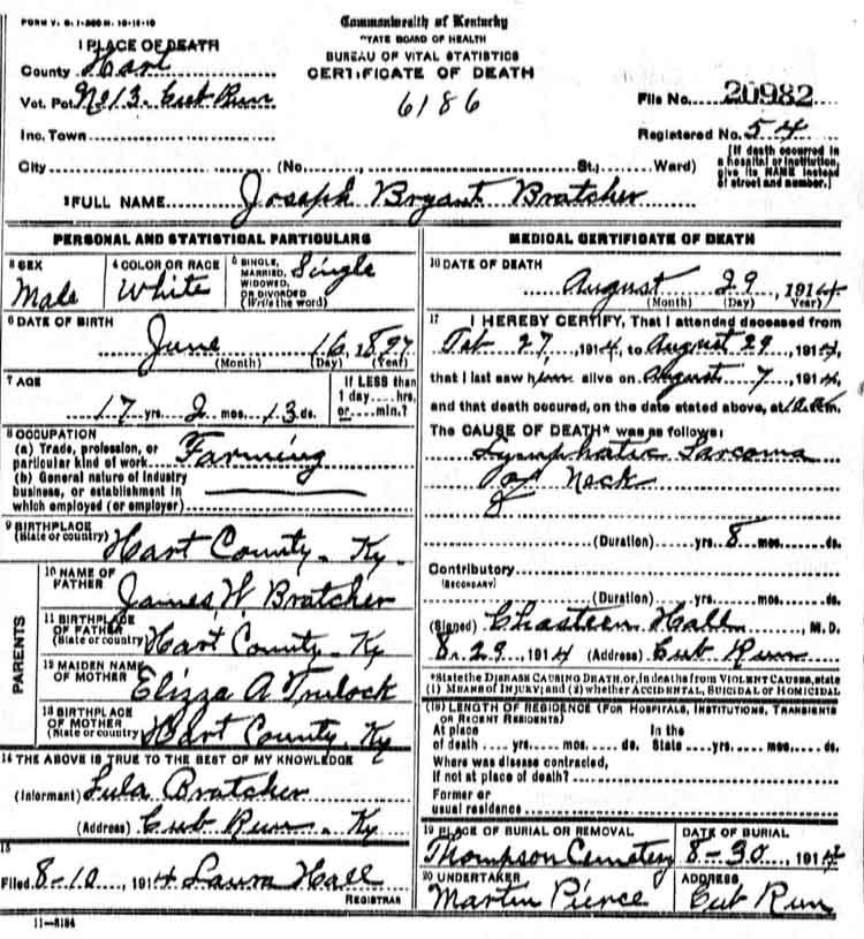 FORM V. S. 1-300 M. 10-16-10
Commonwealth of Kentucky
STATE BOARD OF HEALTH
BUREAU OF VITAL STATISTICS
CERTIFICATE OF DEATH
6186
1 PLACE OF DEATH
County Hart
Vot. Pct. No 13. Cub Run
Inc. Town
City (No. St.; Ward)
File No. 20982
Registered No. 54
[If death occurred in
a hospital or institution,
give its NAME instead
of street and number.]
2 FULL NAME Joseph Bryant Bratcher
PERSONAL AND STATISTICAL PARTICULARS
3 SEX
Male
4 COLOR OR RACE
White
5 SINGLE,
MARRIED,
WIDOWED,
OR DIVORCED
(Write the word)
Single
6 DATE OF BIRTH
June 16, 1897
(Month) (Day) (Year)
7 AGE
17 yrs. 2 mos. 13 ds.
If LESS than
1 day.... hrs.
or.... min.?
8 OCCUPATION
(a) Trade, profession, or
particular kind of work Farming
(b) General nature of industry
business, or establishment in
which employed (or employer)
9 BIRTHPLACE
(State or country) Hart County. Ky.
PARENTS
10 NAME OF
FATHER James W Bratcher
11 BIRTHPLACE
OF FATHER
(State or country) Hart County. Ky
12 MAIDEN NAME
OF MOTHER Elizza A Trulock
13 BIRTHPLACE
OF MOTHER
(State or country) Hart County. Ky
14 THE ABOVE IS TRUE TO THE BEST OF MY KNOWLEDGE
(Informant) Lula Bratcher
(Address) Cub Run. Ky
15
Filed 8-10, 1914 Laura Hall
REGISTRAR
11-3184
MEDICAL CERTIFICATE OF DEATH
16 DATE OF DEATH
August 29, 1914
(Month) (Day) Year)
17 I HEREBY CERTIFY, That I attended deceased from
27, 1914, to August 29, 1914,
that I last saw him alive on August 7, 1914,
and that death occured, on the date stated above, at
The CAUSE OF DEATH* was as follows:
Lymphatic Sarcoma
of Neck
(Duration) yrs. 8 mos. ds.
Contributory
(SECONDARY)
(Duration) yrs. mos. ds.
(Signed) Chasteen Hall, M.D.
8. 29, 1914 (Address) Cub Run
*State the DISEASE CAUSING DEATH, or, in deaths from VIOLENT CAUSES, state
(1) MEANS OF INJURY; and (2) whether ACCIDENTAL, SUICIDAL OR HOMICIDAL
(18) LENGTH OF RESIDENCE (FOR HOSPITALS, INSTITUTIONS, TRANSIENTS
OR RECENT RESIDENTS)
At place In the
of death .... yrs. .... mos. .... ds. State .... yrs. .... mos. .... ds.
Where was disease contracted,
If not at place of death?
Former or
usual residence
19 PLACE OF BURIAL OR REMOVAL
Thompson Cemetery
DATE OF BURIAL
8-30, 1914
20 UNDERTAKER
Martin Pierce
ADDRESS
Cub Run